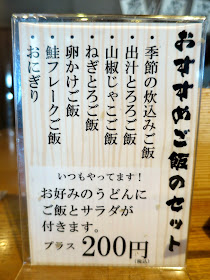 おすすめご飯のセット
・季節の炊込みご飯
・出汁とろろご飯
・山椒じゃこご飯
・ねぎとろご飯
・卵かけご飯
・鮭フレークご飯
・おにぎり
いつもやってます！
お好みのうどんに
ご飯とサラダが
付きます。
プラス 200円
(税込)